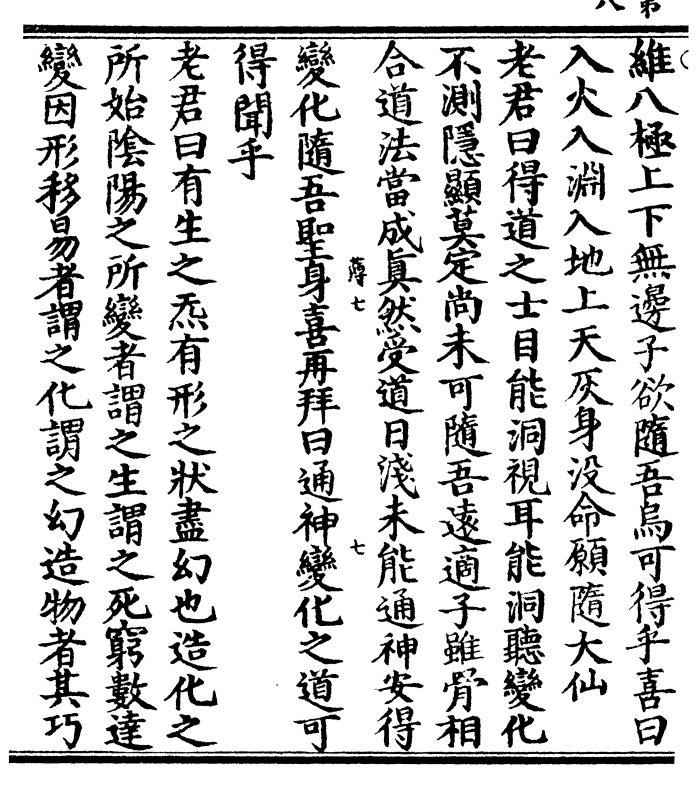 第
八
維八極上下無邊子欲隨吾烏可得乎喜曰
入火入淵入地上天灰身没命願隨大仙
老君曰得道之士目能洞視耳能洞聽變化
不測隱顯莫定尚未可隨吾遠適子雖骨相
合道法當成眞然受道日淺未能通神安得
薄七
七
變化隨吾聖身喜再拜曰通神變化之道可
得聞乎
老君曰有生之炁有形之狀盡幻也造化之
所始陰陽之所變者謂之生謂之死窮數達
變因形移易者謂之化謂之幻造物者其巧